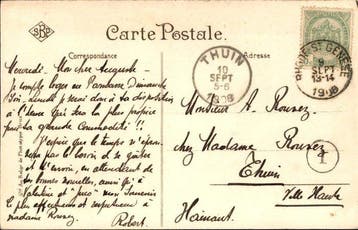 Carte Postale.
Correspondance
Adresse
THUIN
10
SEPT
5-6
1908
RHODE-ST-GENESE
9
SEPT
13-14
1908
Mercredi - Mon cher Auguste -
Je compte loger au Dimanche
soir. je serai donc à ta disposition
à l'heure qui sera la plus propice
pour ta grande commodité !!
J'espère que le temps
pas le loisir de se gâter
et t'envoie, en attendant de
tes bonnes nouvelles, ainsi qu'à
Valentine et mon souvenir
le plus affectueux et respectueux à
madame Rousez.
Robert.
Monsieur A. Rousez
chez Madame Rousez
à Thuin
Ville Haute
Hainaut
1